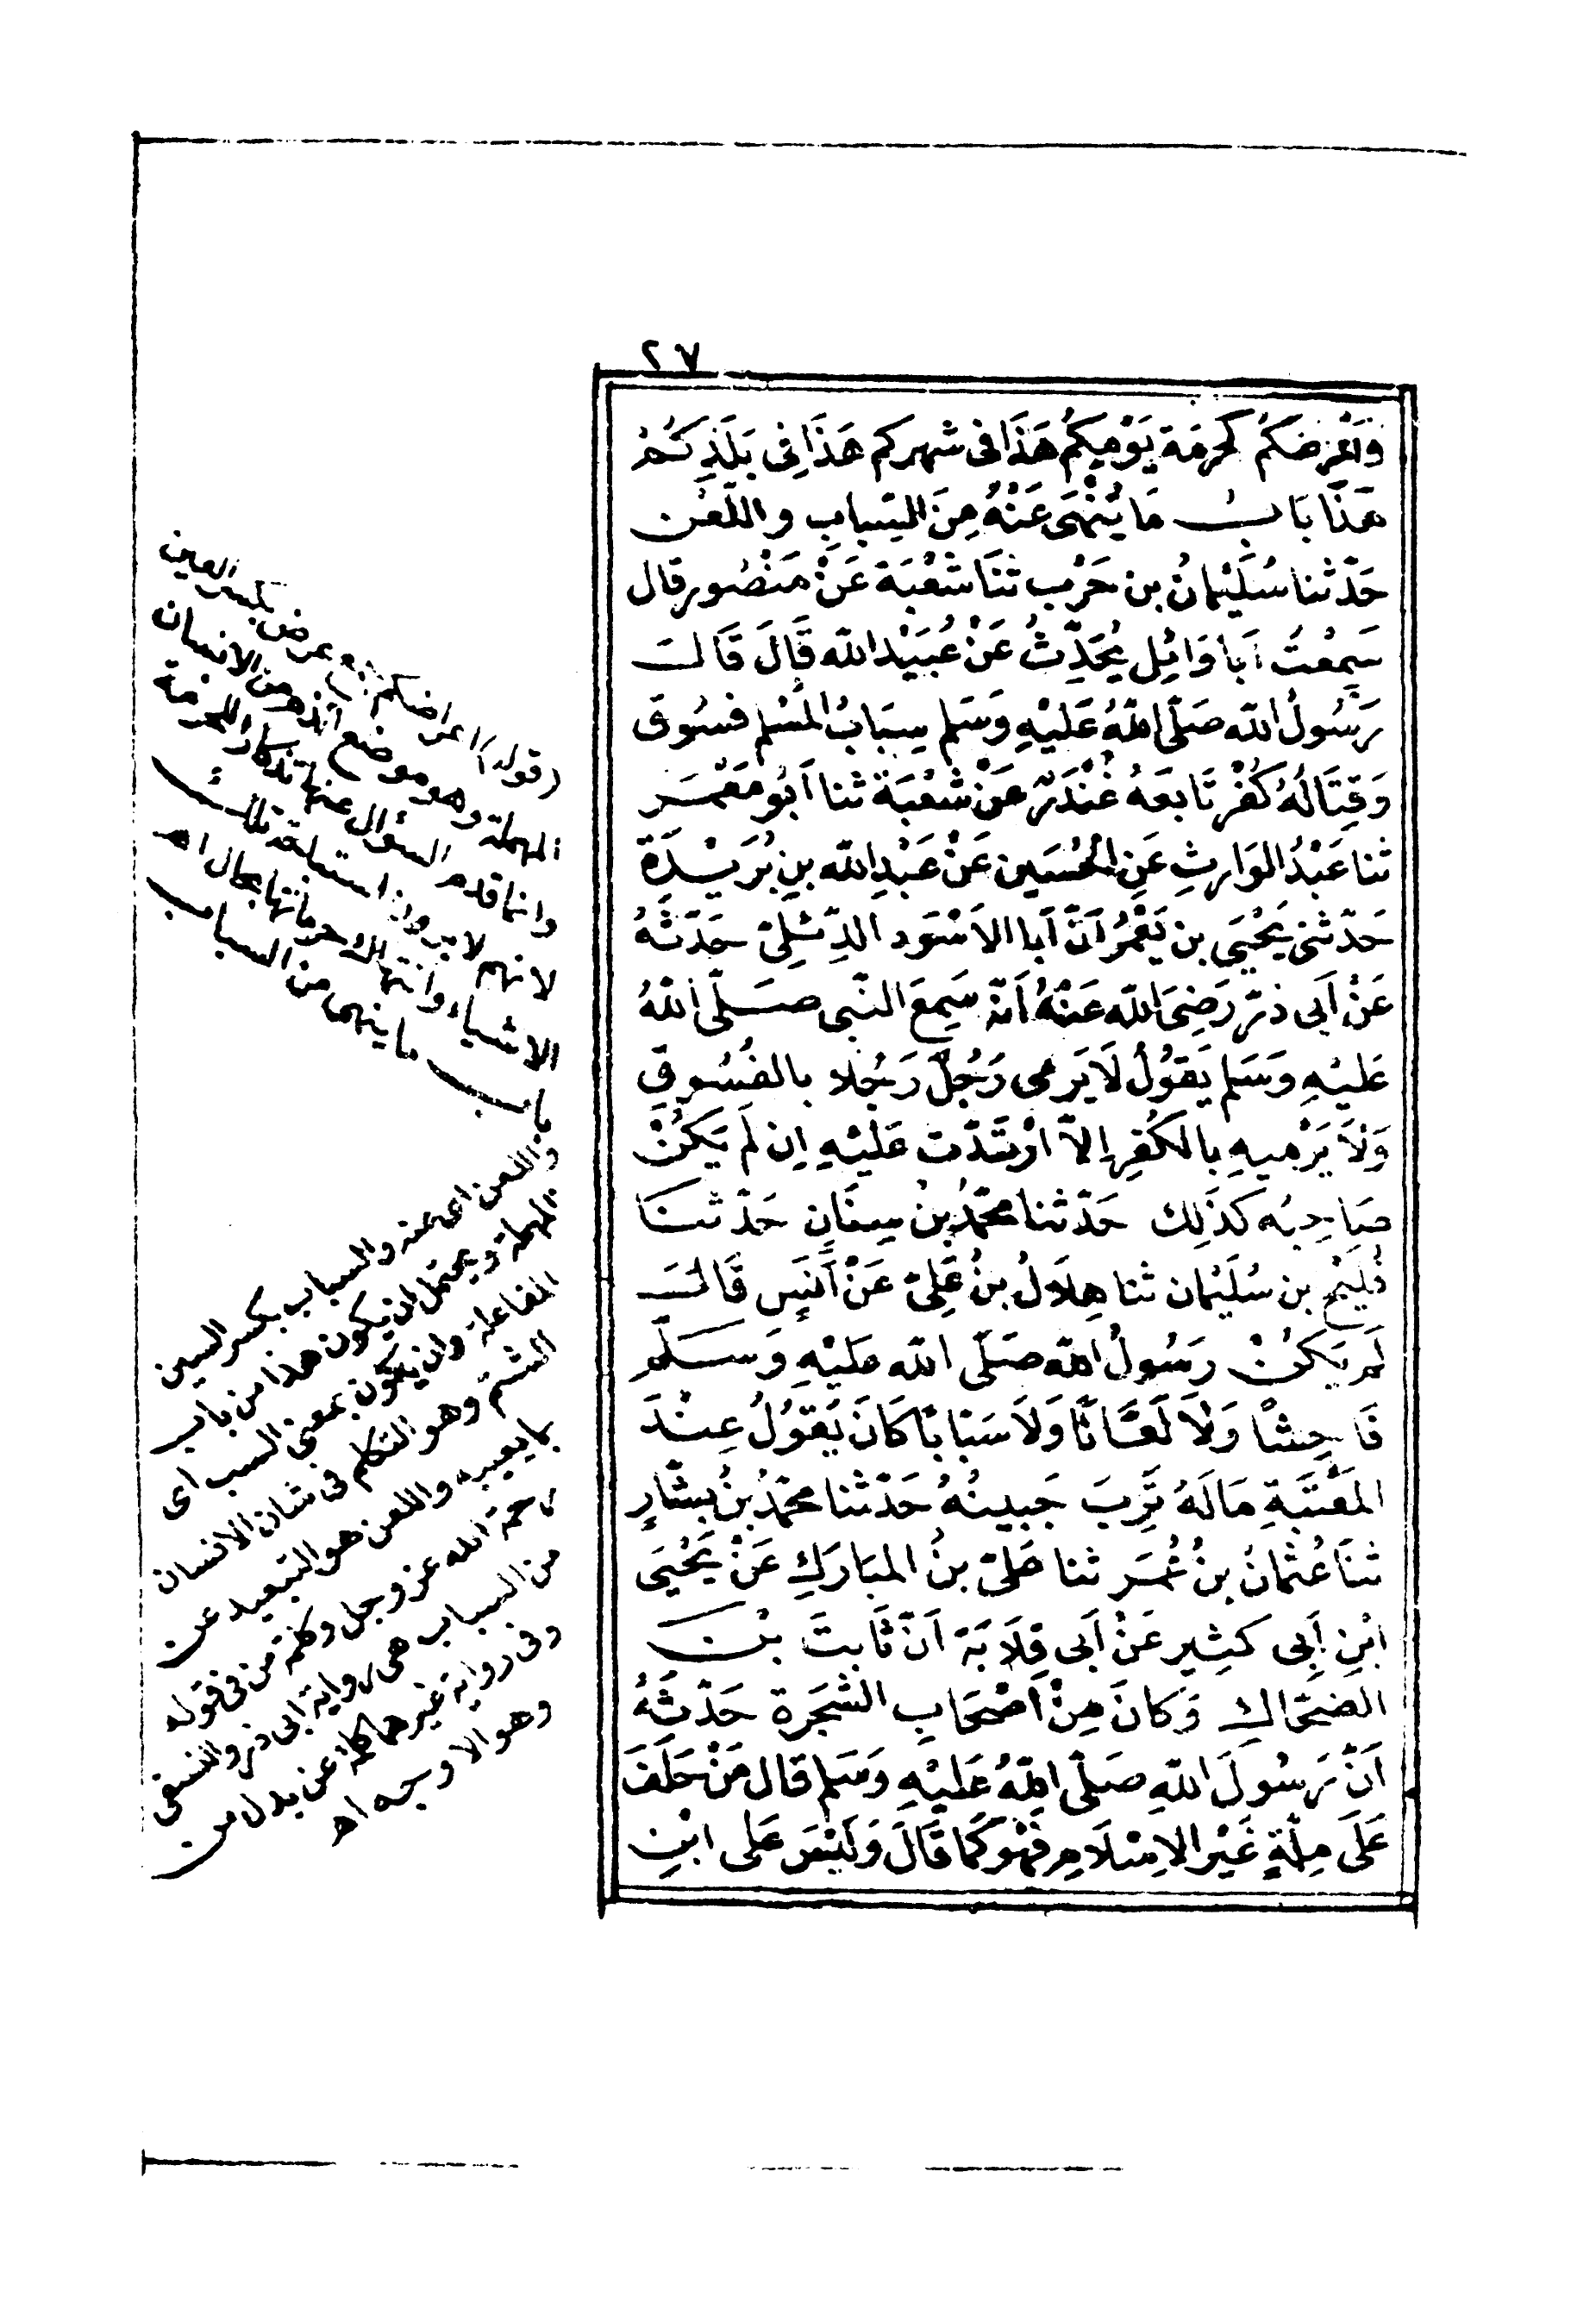 ٢٧
وَأعْرَضَكُم كَحُرمَة يَوْمِكُمْ هَذَا فى شهركم هَذَا فِى بَلَدِكُمْ
هَذَا بَابُ مَا يُنْهَى عَنْهُ مِنَ السِّبابِ واللَّعْن
حَدّثنا سُلَيْمانُ بن حَرْب ثنَا شَعْبَة عَنْ مَنْصُور قال
سَمِعْتُ أبا وَائِل يُحَدِّثُ عَنْ عُبَيْدالله قَالَ قَالَ
رَسُولُ الله صَلّى اللّهُ عَلَيْهِ وَسَلم سِبَابُ المُسْلم فسُوق
وَقِتَالُهُ كُفْر تَابعَهُ غُنْدَرٌ عَنْ شُعْبَة ثنا أبُو مَعْمَر
ثنا عَبْدُ الوَارِثِ عَنِ الْحُسَين عَنْ عَبْدِ الله بنِ بُرَيْدَةَ
حَدّثنى يَحْيَى بن يَعْمُرُ أنّ أبا الاَسْوَد الدِّئلِىّ حَدّثَهُ
عَنْ أبى ذرّ رَضِىَ الله عَنْهُ أنّهُ سَمِعَ النّبى صَلّى اللّهُ
عَليْهِ وَسَلم يَقوُلُ لَا يَرمى رَجُلٌ رَجُلا بالفُسُوقِ
وَلاَ يَرْمِيهِ بالكُفرِ إلاّ ارْتَدّت عَليْهِ إن لَم يَكُنْ
صَاحِبُه كَذَلِك حَدّثنا محمّدُ بنُ سِنَانٍ حَدّثنَا
فُلَيْحُ بن سُلَيْمان ثنا هِلاَلُ بنُ عَلِىّ عَنْ أنَسٍ قَالَ
لَم يَكُنْ رَسُولُ الله صَلّى الله عليْهِ وَسَلّم
فَاحِشًا وَلاَ لَعَّانًا وَلاَ سَبّابًا كانَ يَقوُلُ عِنْدَ
المَعْتَبَةِ مَالَهُ تَرِبَ جَبِينُهُ حَدّثنا محمّدُ بنُ بشّارٍ
ثنَا عُثمانُ بنُ عُمَر ثنا عَلىّ بنُ المبَارَكِ عَنْ يَحْيَى
ابْنِ أبِى كثِيرٍ عَنْ أبى قِلاَبَة أنّ ثَابتَ بْنَ
الضحّاكِ وَكانَ مِنْ أصْحَابِ الشّجَرة حَدّثَهُ
أنَّ رَسُولَ اللّهِ صَلّى اللّهُ عَليْهِ وَسَلم قال مَنْ حَلَفَ
عَلَى مِلّةٍ غَيْرِ الاِسْلاَمِ فَهْوَ كَمَا قَالَ وَلَيْسَ عَلى ابْنِ
(قوله) اعراضكم جمع عرض بكسر العين
المهملة وهو موضع الذم من الانسان
وانما قدم السؤال عنها تذكارا للحرمة
لانهم لا يرون استباحة تلك
الاشياء وانتهاك حرمانها بحال اه
باب ما ينهى من السباب
واللعن اى عنه والسباب بكسر السين
المهملة ويحتمل ان يكون هذا من باب
المفاعلة وان يكون بمعنى السب اى
الشتم وهو التكلم فى شان الانسان
بما يعيبه واللعن هو التبعيد عن
رحمة الله عز وجل وكلمة من فى قوله
من السباب هى رواية ابى ذر والنسفى
وفى رواية غيرهما كلمة عن بدل من
وهو الاوجه اه